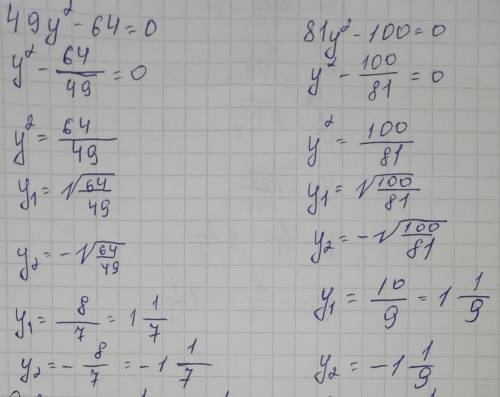 49y² - 64 = 0
y² - 64/49 = 0
y² = 64/49
y₁ = √64/49
y₂ = -√64/49
y₁ = 8/7 = 1 1/7
y₂ = - 8/7 = -1 1/7
81y² - 100 = 0
y² - 100/81 = 0
y² = 100/81
y₁ = √100/81
y₂ = -√100/81
y₁ = 10/9 = 1 1/9
y₂ = -1 1/9